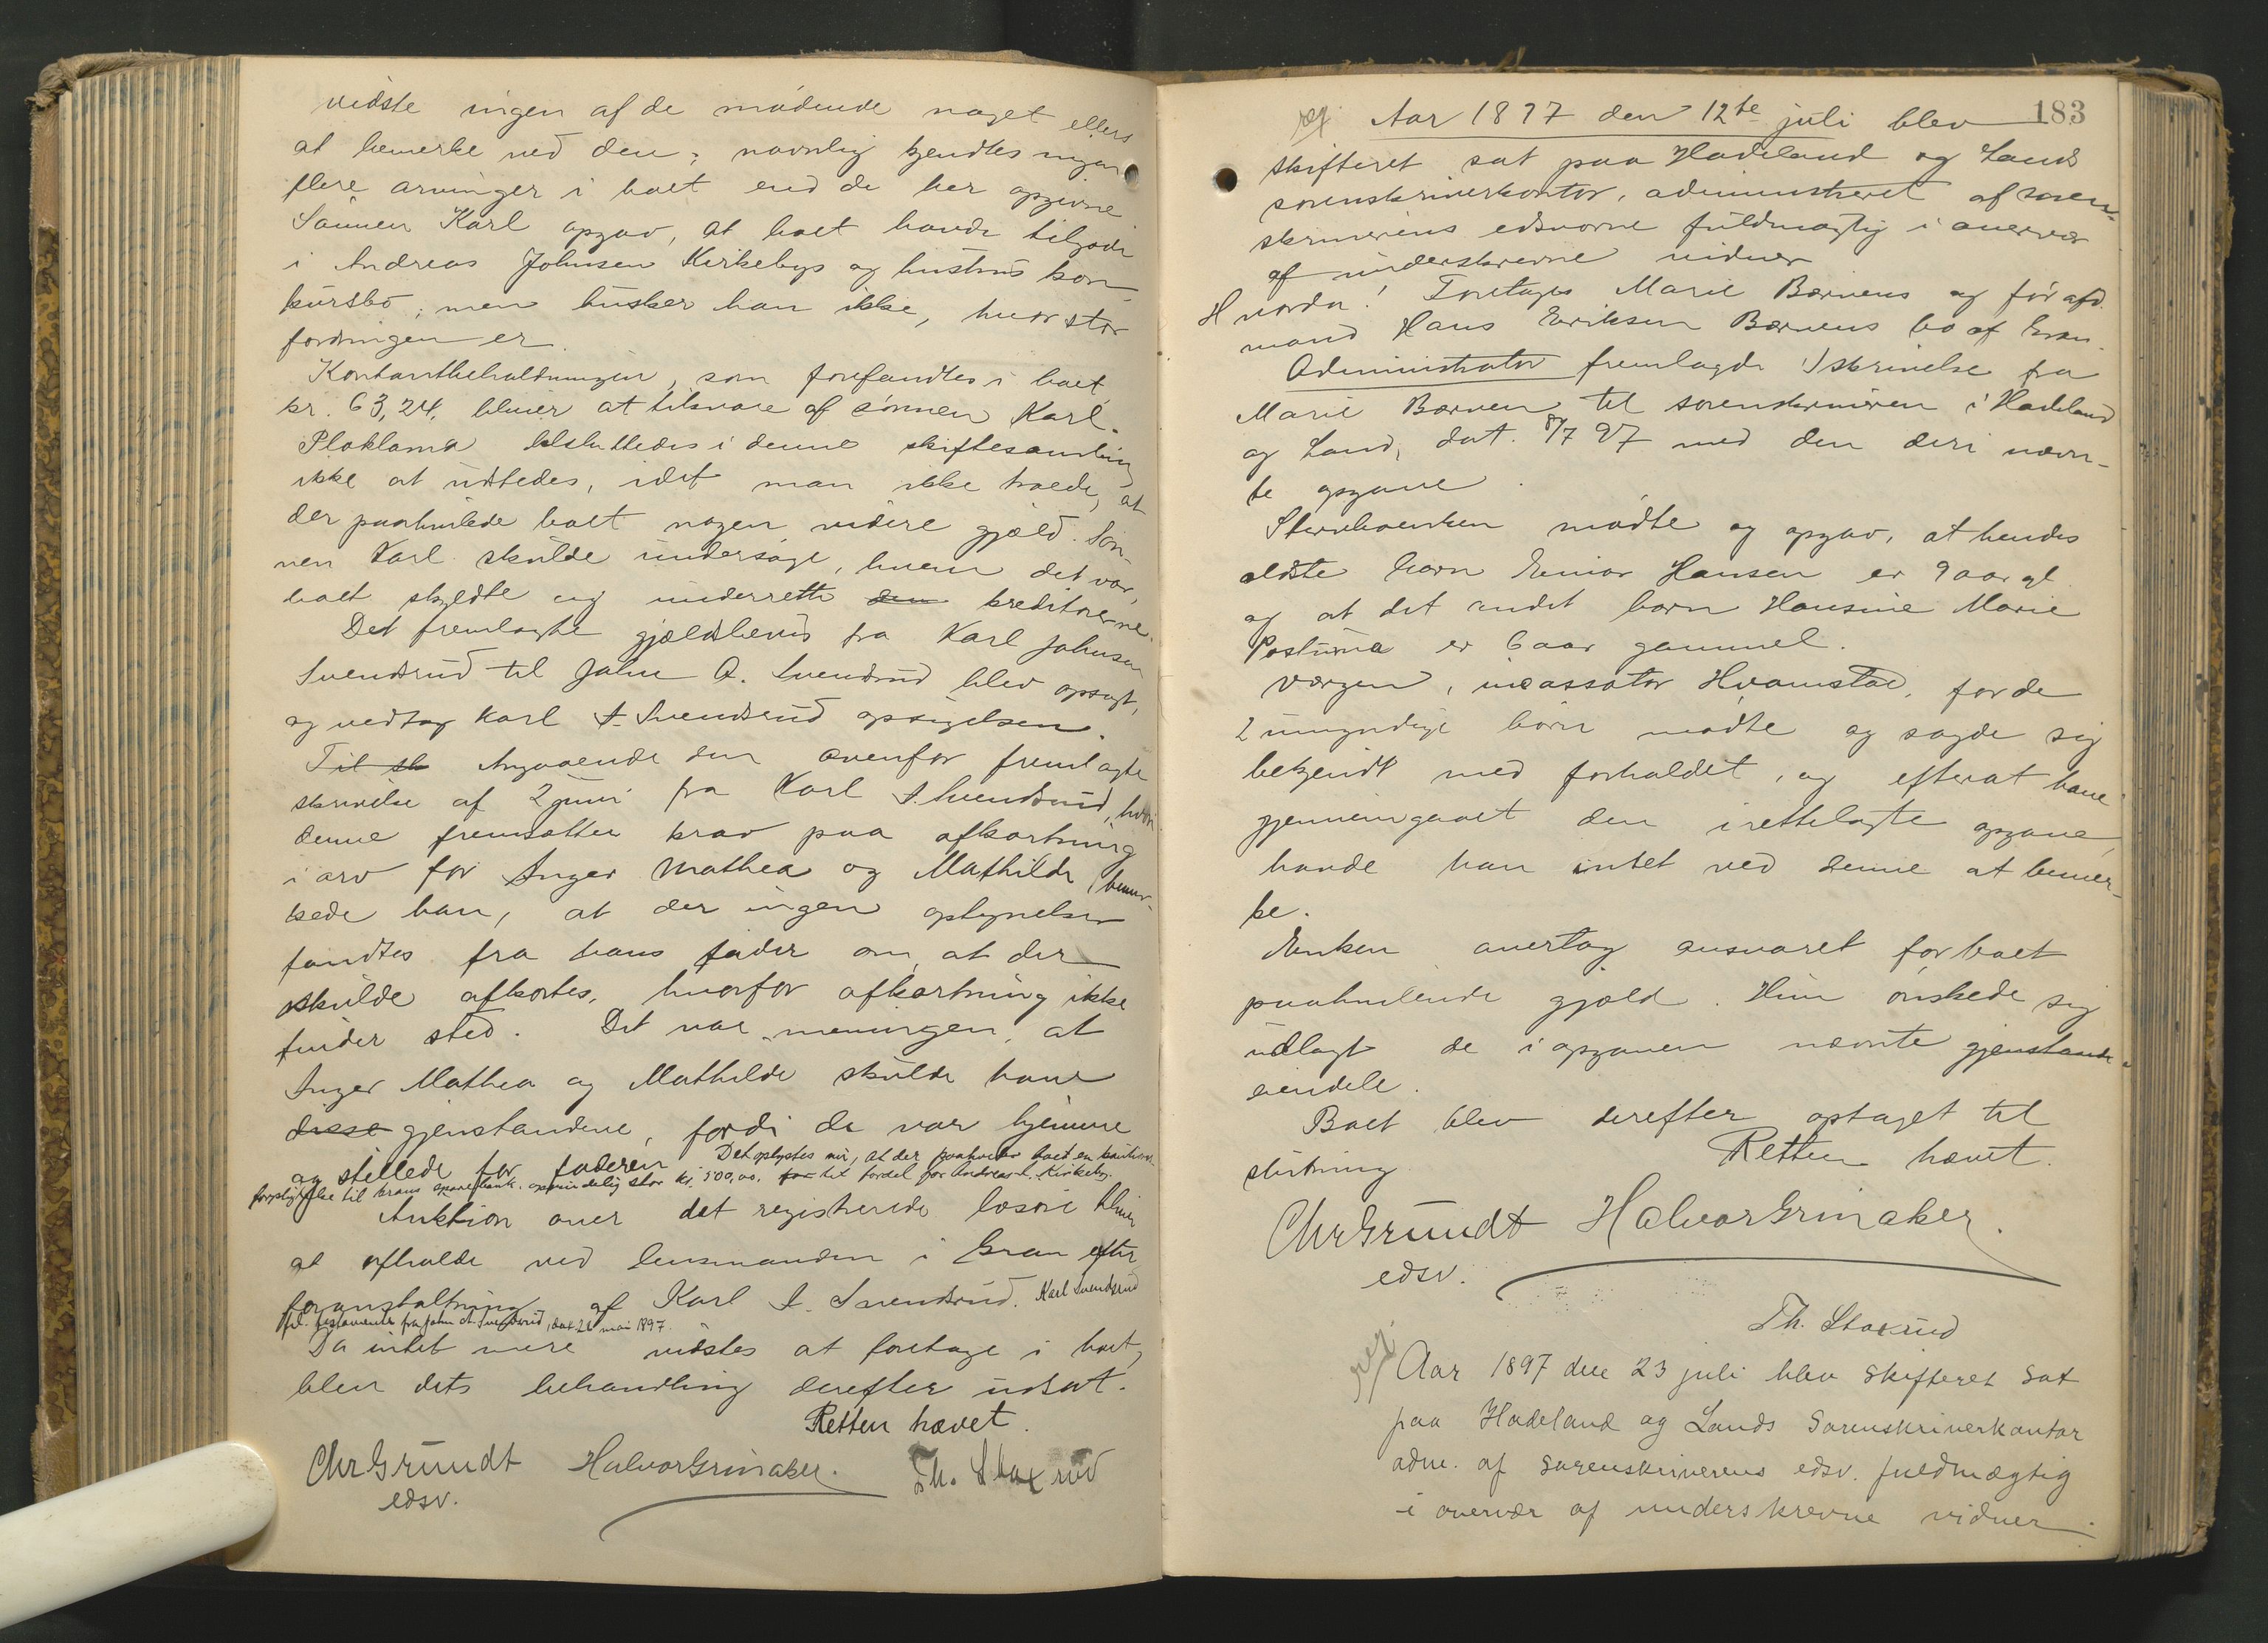 vidste ingen af de mødende noget ellers
at bemerke ved den; navnlig kjendtes ingen
flere arvinger i boet end de her opgivne
Sønnen Karl opgav, at boet havde tilgode
i Andreas Johnsen Kirkebys og hustrus kon-
kursbo; men husker han ikke, hvor stor
fordringen er.
Kontantbeholdningen, som forefandtes i boet,
kr. 63,24, bliver at tilsvare af sønnen Karl.
Ploklama besluttedes i denne skiftesamling
ikke at udstedes, idet man ikke troede, at
der paahvilede boet nogen videre gjæld. Søn-
nen Karl skulde undersøge, hvem det var,
boet skyldte og underrette den kreditorerne.
Det fremlagte gjældsbevis fra Karl Johnsen
Svendsrud til John A. Svendsrud blev opsagt,
og vedtog Karl A. Svendsrud opsigelsen.
Til sk Angaaende den ovenfor fremlagte
skrivelse af 2 juni fra Karl A. Svendsrud, hvori
denne fremsætter krav paa afkortning
i arv for Inger Mathea og Mathilde, bemer-
kede han, at der ingen oplyselser
fandtes fra hans fader om, at der
skulde afkortes, hvorfor afkortning ikke
finder sted. Det var meningen, at
Inger Mathea og Mathilde skulde have
disse gjenstandene, fordi de var hjemme
og stellede for faderen. Det oplystes nu, at der paahviler boet en kautions-
forpligtelse til Grans sparebank, oprindelig stor kr. 500,00, for til fordel for Andreas A. Kirkeby.
Auktion over det registrerede løsøre bliver
at afholde ved lensmanden i Gran efter
foranstaltning af Karl A. Svendsrud. Karl Svendsrud
frl. testamente fra John A. Svendsrud, dat. 26 mai 1897.
Da intet mere vidstes at foretage i boet,
blev dets behandling derefter udsat.
Retten hævet.
Chr Grundt Halvor Grinaker. Th. Staxrud
edsv.
183
reg Aar 1897 den 12te juli blev
skifteret sat paa Hadeland og Lands
sorenskriverkontor, administreret af soren-
skriverens edsvorne fuldmægtig i overvær
af underskrevne vidner
Hvorda! Foretages Marie Bærvens og før afd.
mand Hans Eriksen Bærvens bo af Gran.
Administrator fremlagde 1) skrivelse fra
Marie Bærven til sorenskriveren i Hadeland
og Land, dat. 8/7 97 med den deri nævn-
te opgave.
Stervboenken mødte og opgav, at hendes
ældste barn Einar Hansen er 9 aar gl.
og at det andet barn Hansine Marie
Postuma er 6 aar gammel.
Værgen, incassator Hvamstad, for de
2 umyndige børn mødte og sagde sig
bekjendt med forholdet, og efterat have
gjennemgaaet den irettelagte opgave,
havde han intet ved denne at bemer-
ke.
Enken overtog ansvaret for boet
paahvilende gjæld. Hun ønskede sig
udlagt de i opgaven nævnte gjenstande
eiendele.
Boet blev derefter optaget til
slutning Retten hævet.
Chr Grundt Halvor Grinaker.
edsv.
Th. Staxrud
reg. Aar 1897 den 23 juli blev skifteret sat
paa Hadeland og Lands Sorenskriverkontor
adm. af sorenskriverens edsv. fuldmægtig
i overvær af underskrevne vidner.